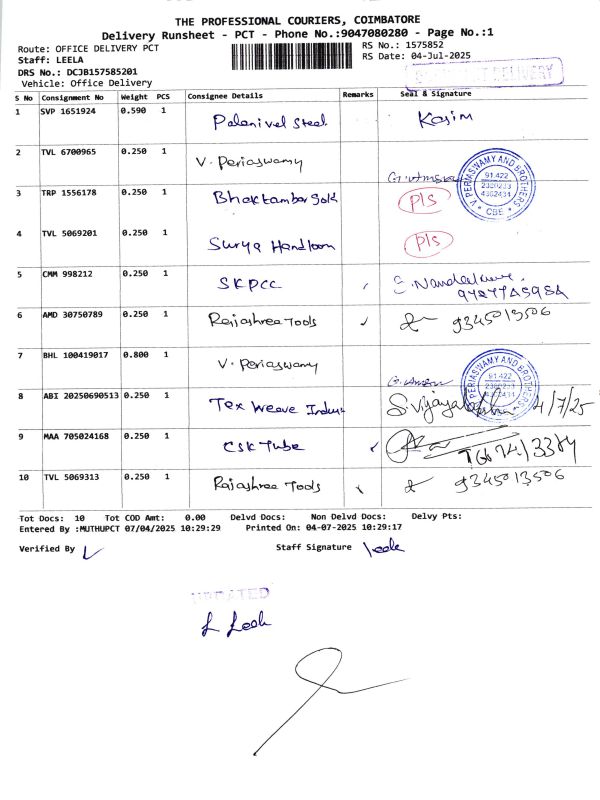 THE PROFESSIONAL COURIERS, COIMBATORE
Delivery Runsheet - PCT - Phone No.:9047080280 - Page No.:1
Route: OFFICE DELIVERY PCT RS No.: 1575852
Staff: LEELA RS Date: 04-Jul-2025
DRS No.: DCJB157585201
Vehicle: Office Delivery DELIVERY
S No Consignment No Weight PCS Consignee Details Remarks Seal & Signature
1 SVP 1651924 0.590 1 Palanivel Steel Kasim
2 TVL 6700965 0.250 1 V. Periaswamy
V. PERIASWAMY AND BROTHERS * CBE *
91.422
2320233
4362431
3 TRP 1556178 0.250 1 Bhaktambar Gold Pls
4 TVL 5069201 0.250 1 Surya Handloom Pls
5 CMM 998212 0.250 1 SKPCC
6 AMD 30750789 0.250 1 Rajashree Tools ✓ 9345013506
7 BHL 100419017 0.800 1 V. Periaswamy
PERIASWAMY AND BROTHERS
91.422
8 ABI 20250690513 0.250 1 Tex Weave 4/7/25
9 MAA 705024168 0.250 1 CSK Tube ✓
10 TVL 5069313 0.250 1 Rajashree Tools 9345013506
Tot Docs: 10 Tot COD Amt: 0.00 Delvd Docs: Non Delvd Docs: Delvy Pts:
Entered By :MUTHUPCT 07/04/2025 10:29:29 Printed On: 04-07-2025 10:29:17
Verified By Staff Signature leela
UPDATED
L Leela